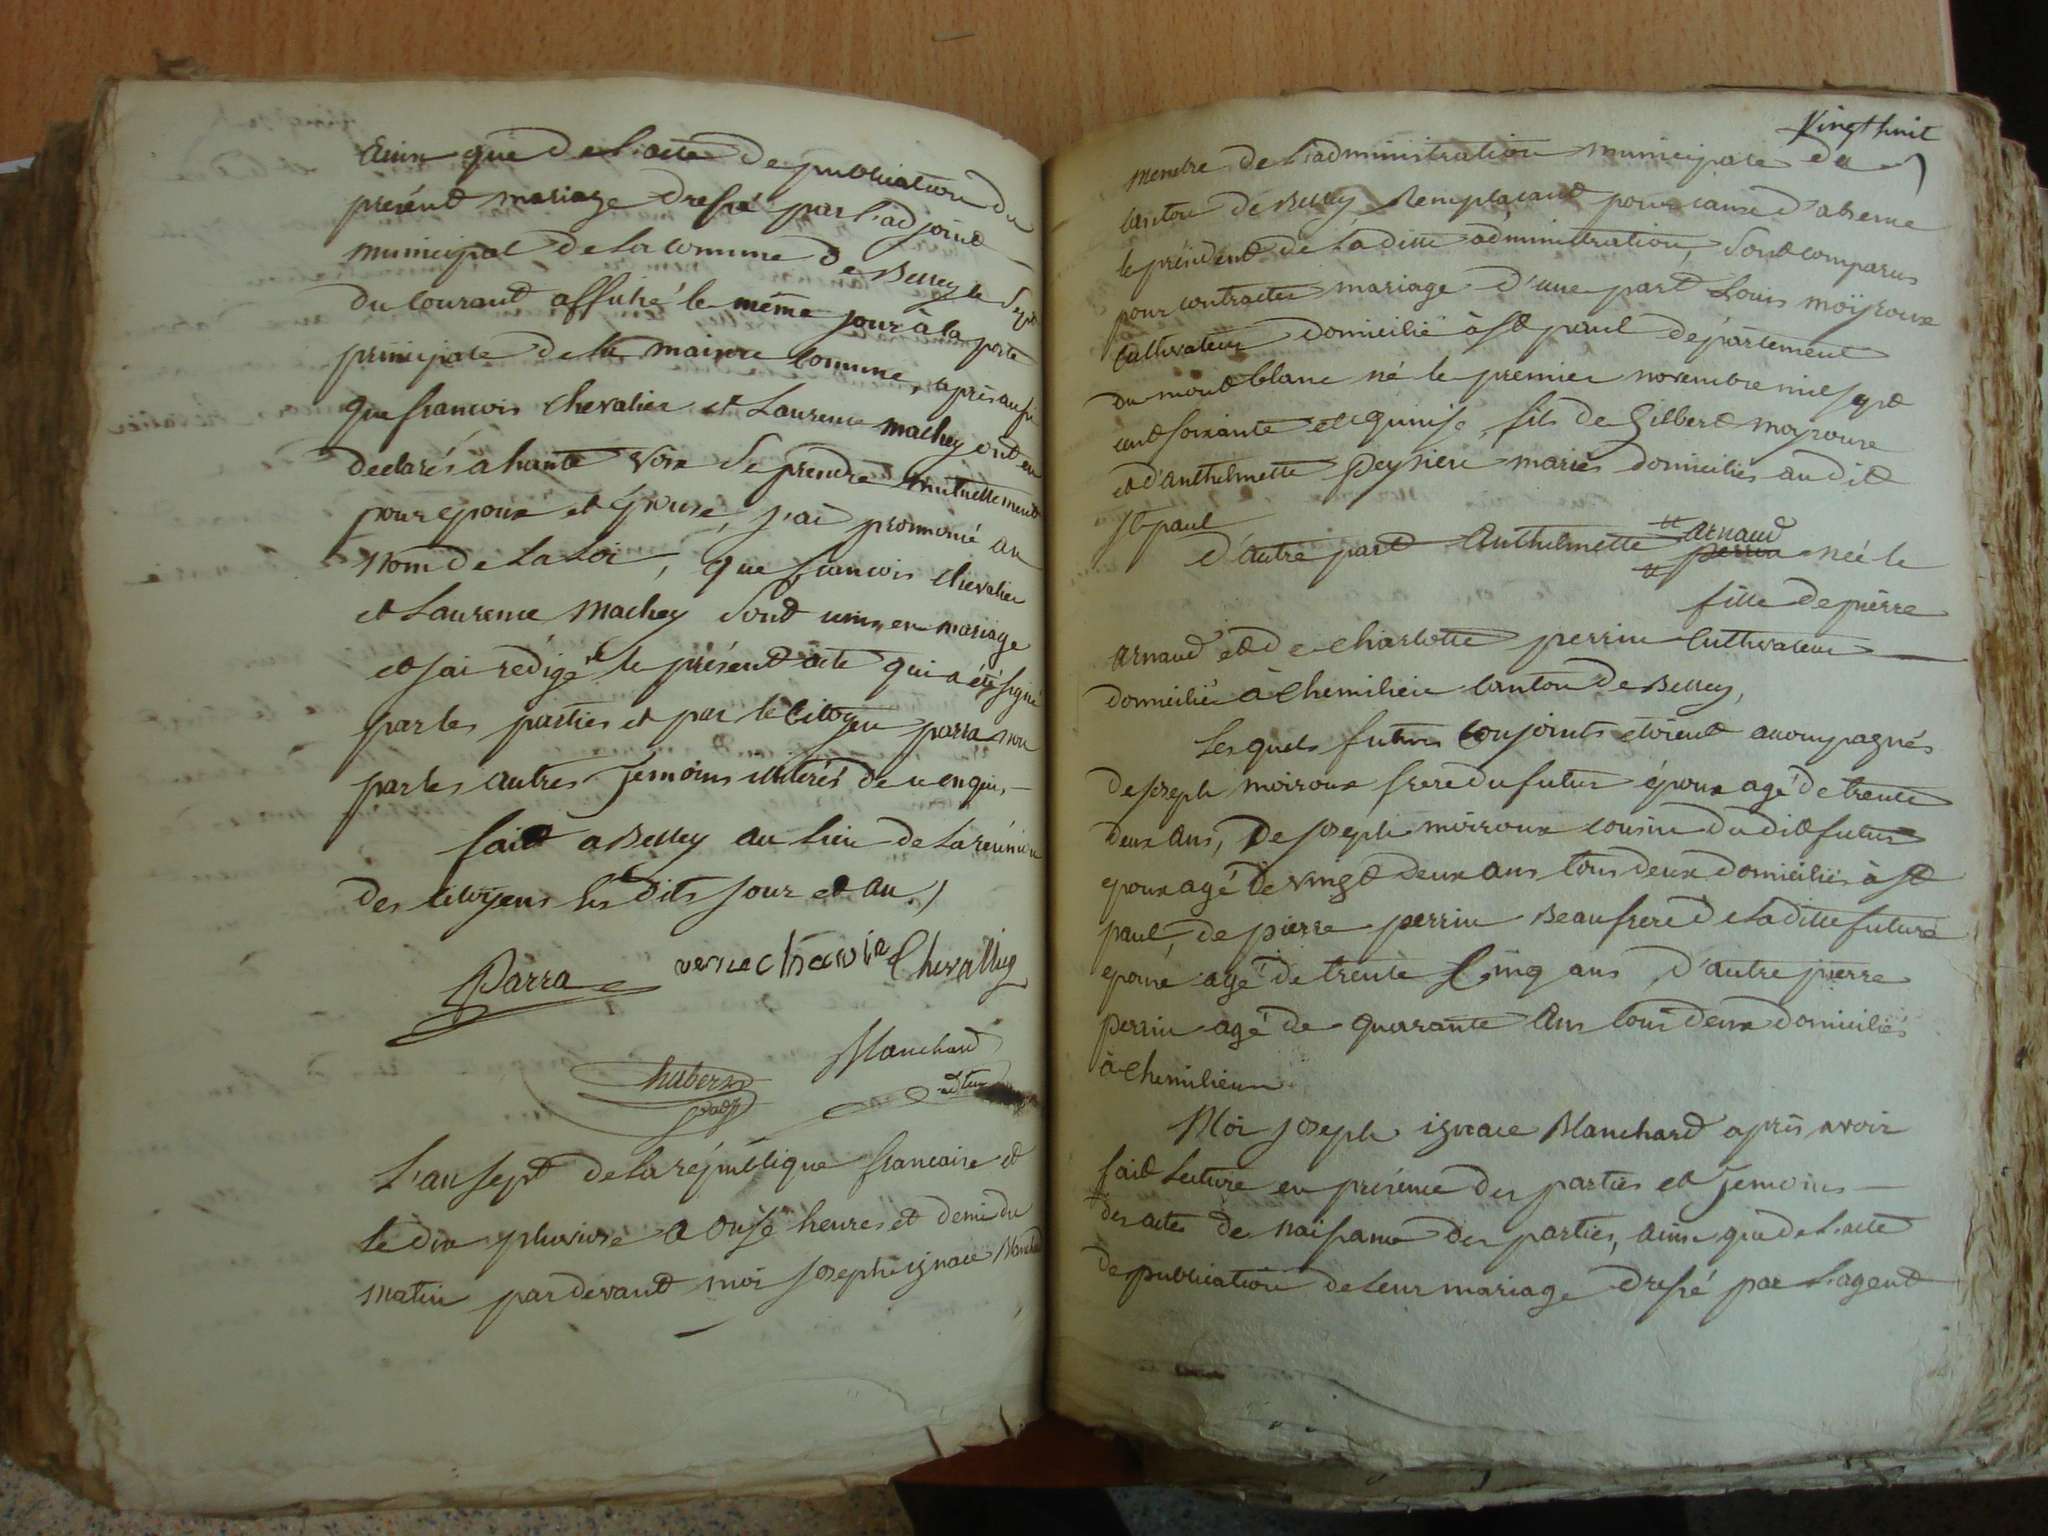 Ainsi que de l'acte de publication du
présent mariage dressé par l'adjoint
municipal de la commune de Belley le sept
du courant affiché le même jour à la porte
principale de la maison commune, après aussi
que francois chevalier et Laurence machey ont eu
declarés a haute voix se prendre mutuellement
pour epoux et épouse, j'ai prononcé au
nom de la Loi, que francois chevalier
et Laurence Machey sont unis en mariage
et j'ai redigé le présent acte qui a été signé
par les parties et par le Citoyen parra non
par les autres temoins illitérés de ce enquis
fait a Belley au lieu de la réunion
des citoyens les dits jour et an
Parra Chevallier
Blanchard
L'an sept de la république francaise et
le dix pluviose a onze heures et demi du
matin pardevant moi joseph ignace Blanchard
Vingt huit
membre de l'administration municipale du
canton de Belley Remplacant pour cause d'absence
le président de la ditte administration, sont comparus
pour contracter mariage d'une part Louis moÿroux
cultivateur domicilié à St paul département
du mont blanc né le premier novembre mil sept
cent soixante et quinise, fils de Gilbert moyroux
et d'anthelmette peysieu mariés domiciliés au dit
St paul
d'autre part Anthelmette Arnaud née le
fille de pierre
Arnaud et de charlotte perrin Cultivateur
domicilié à Chemilieu canton de Belley,
Lesquels futurs conjoints etoient accompagnés
de joseph moiroux frere du futur époux agé de trente
deux ans, de joseph moiroux cousin du dit futur
epoux agé de vingt deux ans tous deux domiciliés à St
paul, de pierre perrin Beaufrere de la ditte future
epouse agé de trente Cinq ans, d'autre pierre
perrin agé de quarante ans tous deux domiciliés
à chemilieu
Moi joseph ignace Blanchard après avoir
fait Lecture en présence des parties et temoins
des actes de naissance des parties, ainsi que de l'acte
de publication de leur mariage dressé par L'agent